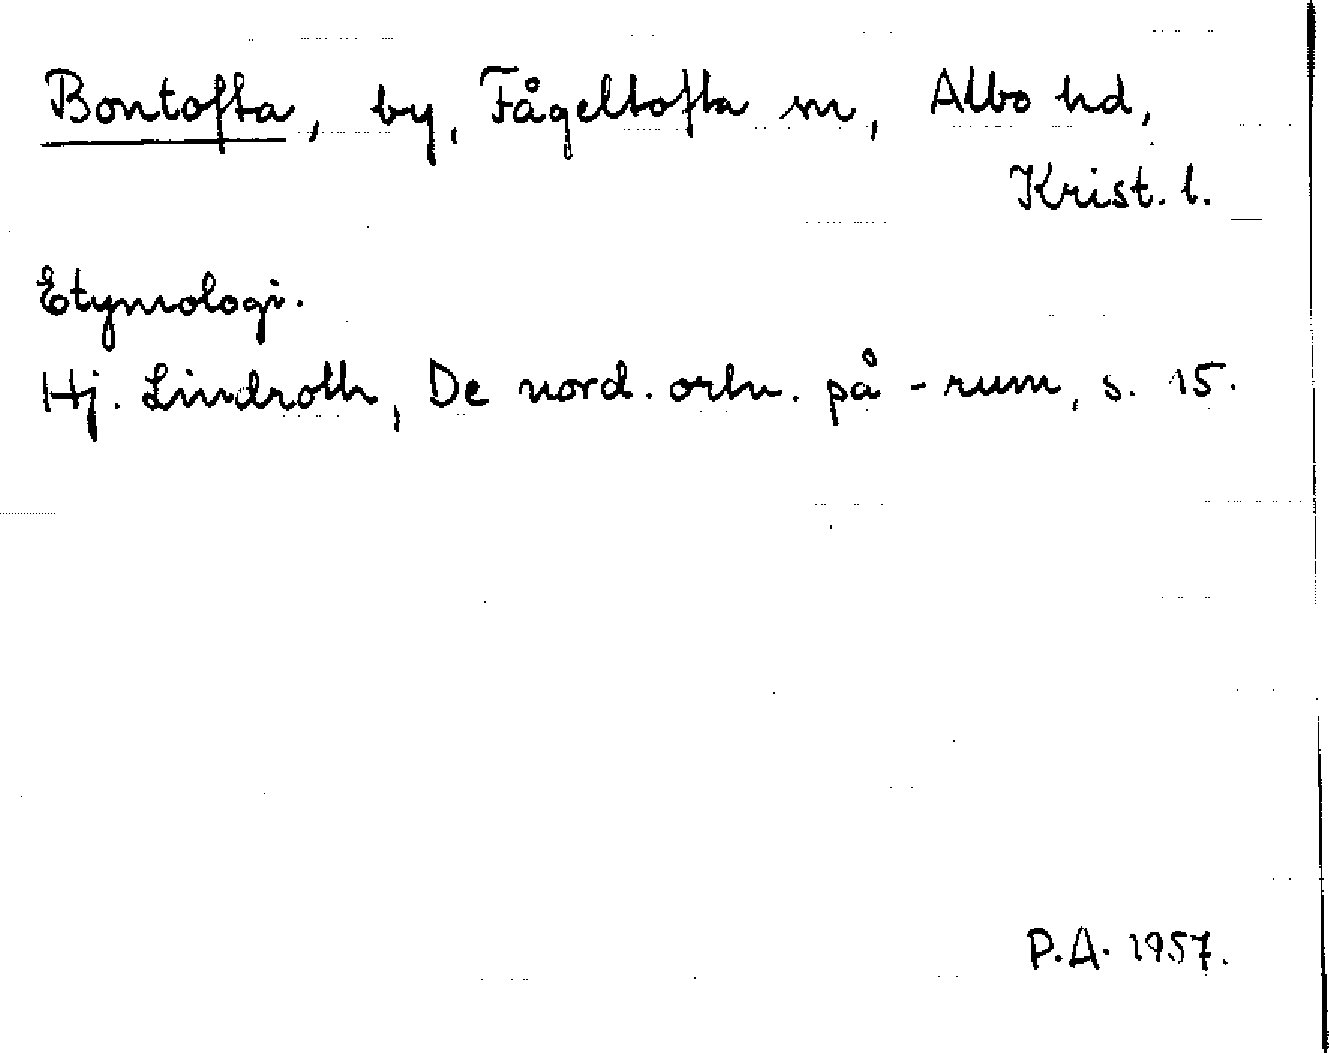 Bontofta, by, Fågeltofta sn, Albo hd,
Krist. l.
Etymologi.
Hj. Lindroth, De nord. ortn. på -rum, s. 15.
P.A. 1957.